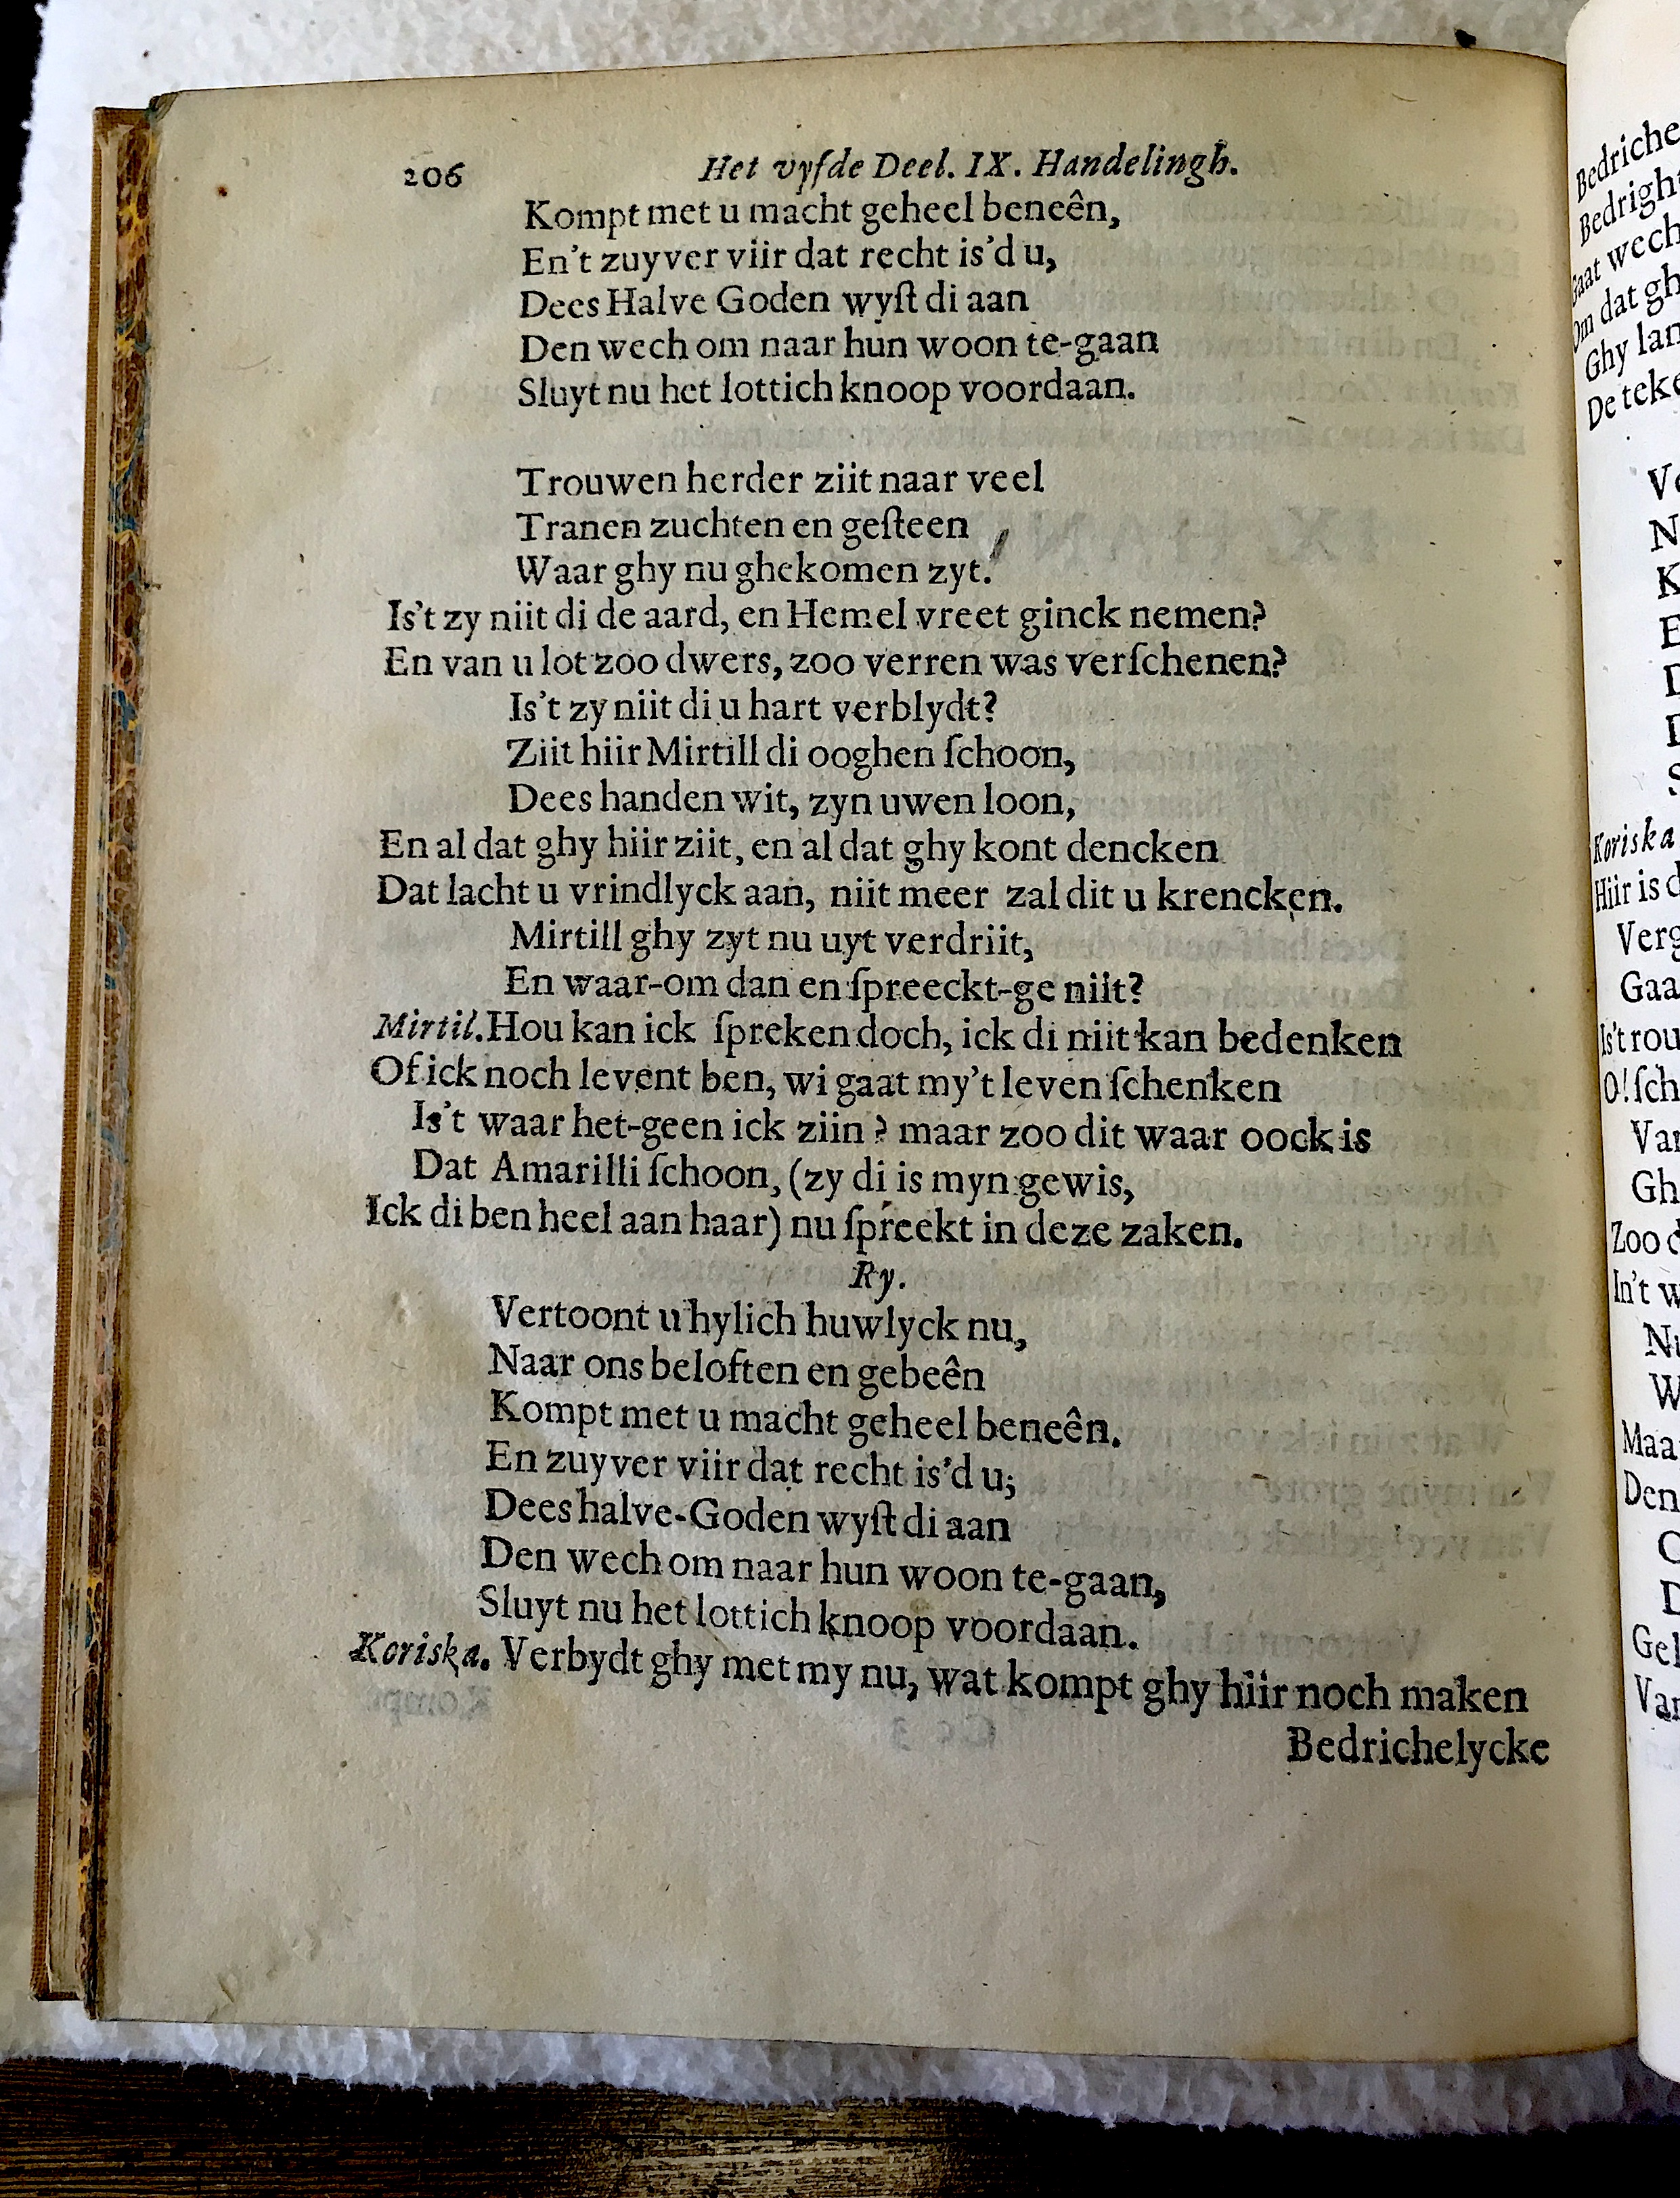 206 Het vyfde Deel. IX. Handelingh.
Kompt met u macht geheel beneên,
En't zuyver viir dat recht is'd u,
Dees Halve Goden wyſt di aan
Den wech om naar hun woon te-gaan
Sluyt nu het lottich knoop voordaan.
Trouwen herder ziit naar veel
Tranen zuchten en geſteen
Waar ghy nu ghekomen zyt.
Is't zy niit di de aard, en Hemel vreet ginck nemen?
En van u lot zoo dwers, zoo verren was verſchenen?
Is't zy niit di u hart verblydt?
Ziit hiir Mirtill di ooghen ſchoon,
Dees handen wit, zyn uwen loon,
En al dat ghy hiir ziit, en al dat ghy kont dencken
Dat lacht u vrindlyck aan, niit meer zal dit u krencken.
Mirtill ghy zyt nu uyt verdriit,
En waar-om dan en ſpreeckt-ge niit?
Mirtil. Hou kan ick ſpreken doch, ick di niit kan bedenken
Of ick noch levent ben, wi gaat my't leven ſchenken
Is't waar het-geen ick ziin? maar zoo dit waar oock is
Dat Amarilli ſchoon, (zy di is myn gewis,
Ick di ben heel aan haar) nu ſpreekt in deze zaken.
Ry.
Vertoont u hylich huwlyck nu,
Naar ons beloften en gebeên
Kompt met u macht geheel beneên.
En zuyver viir dat recht is'd u;
Dees halve-Goden wyſt di aan
Den wech om naar hun woon te-gaan,
Sluyt nu het lottich knoop voordaan.
Koriska. Verbydt ghy met my nu, wat kompt ghy hiir noch maken
Bedrichelycke
Koriska
Hiir is